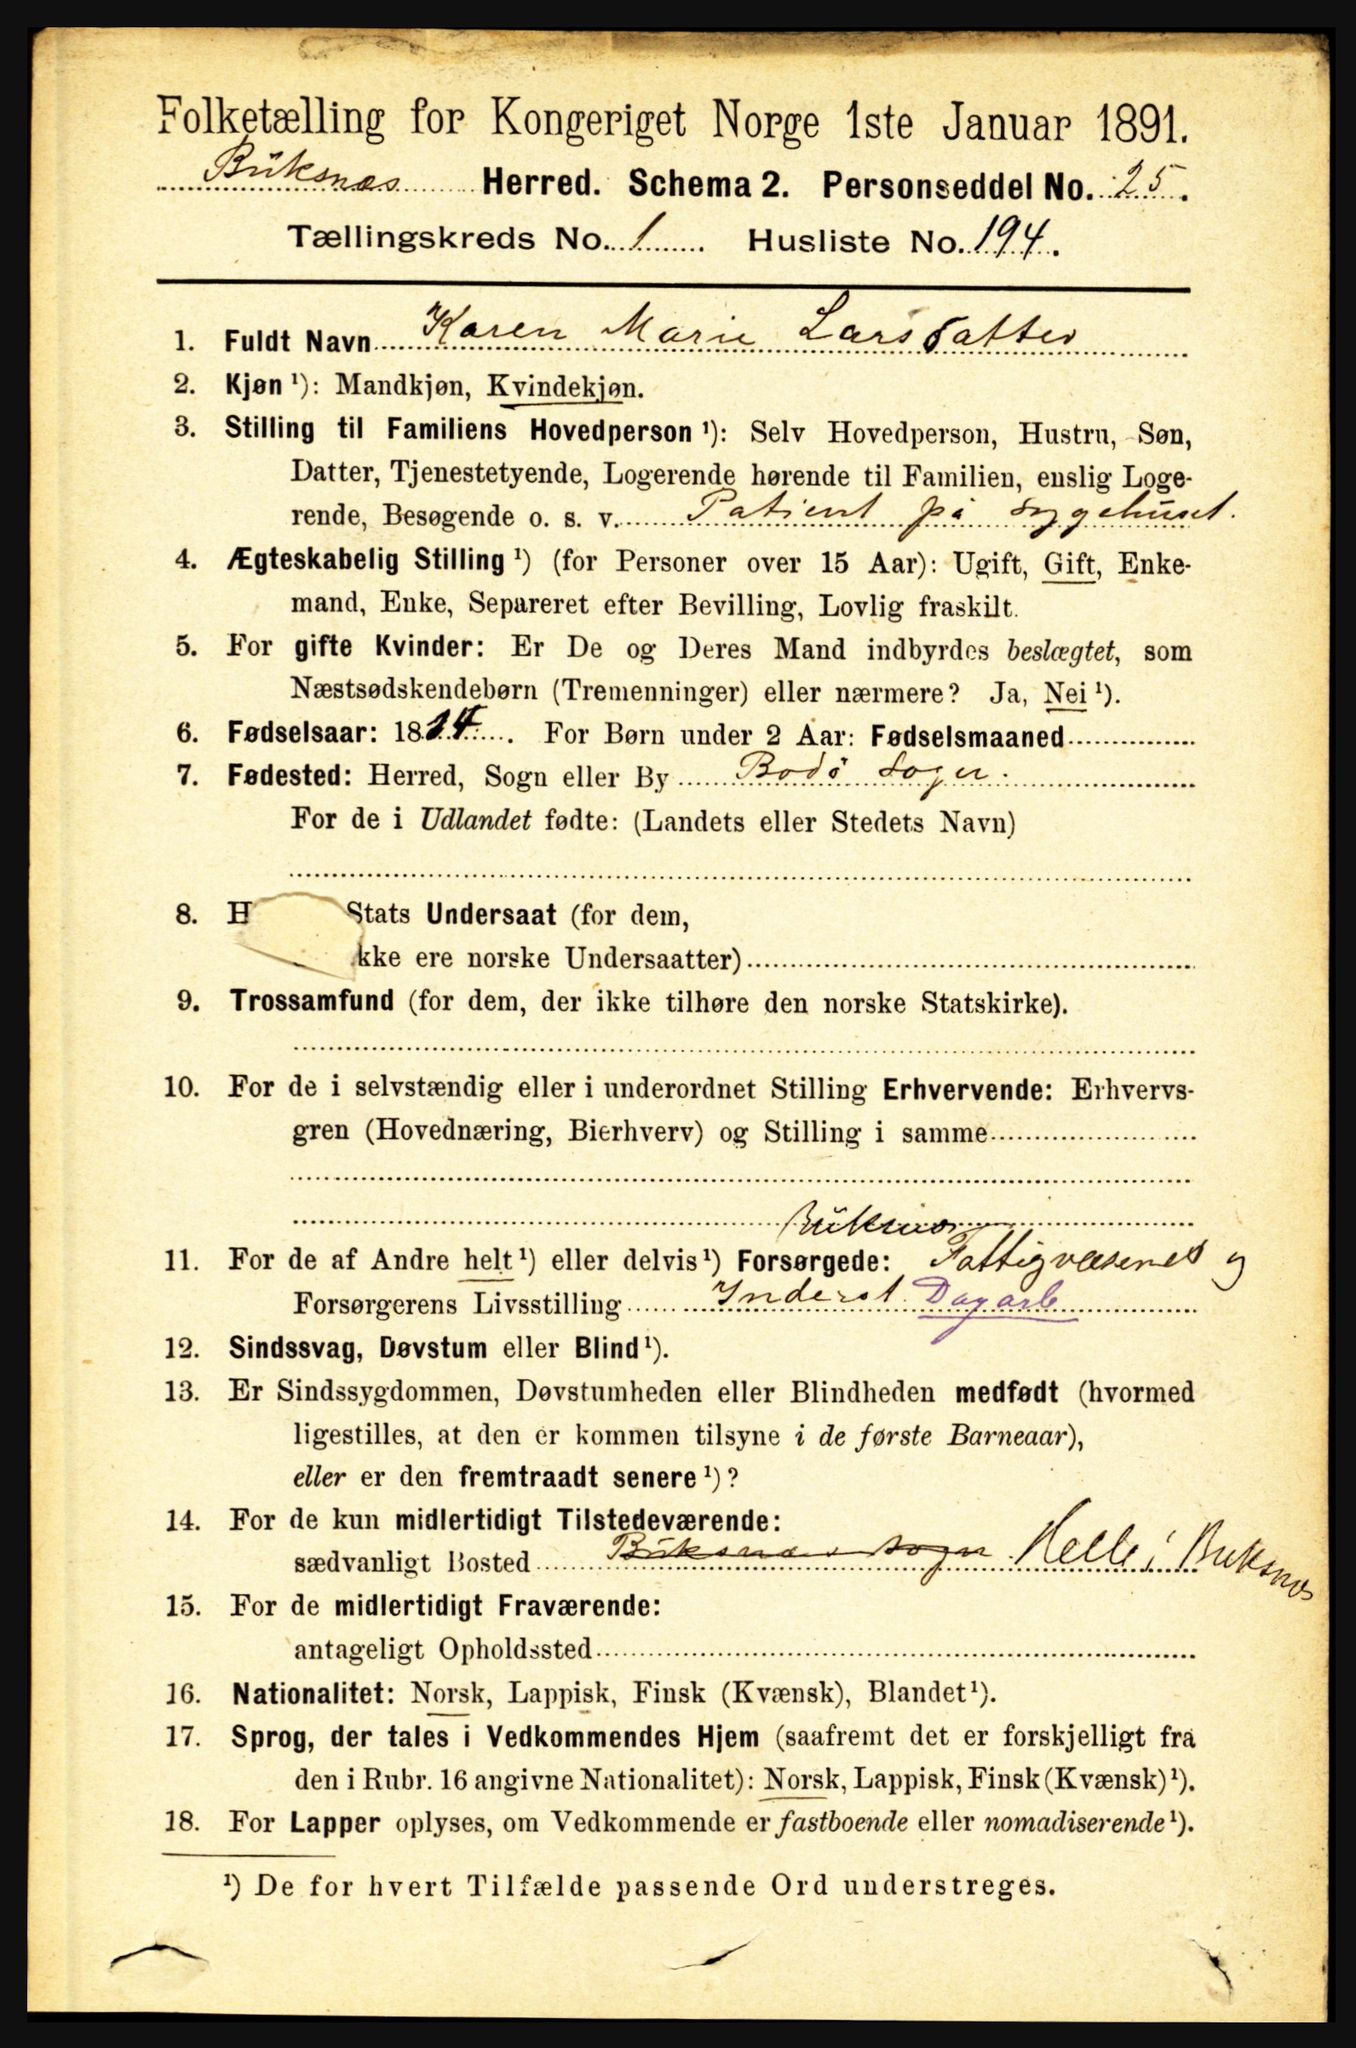 Folketælling for Kongeriget Norge 1ste Januar 1891.
Buksnæs Herred. Schema 2. Personseddel No. 25.
Tællingskreds No. 1 Husliste No. 194.
1. Fuldt Navn Karen Marie Larsdatter
2. Kjøn ¹): Mandkjøn, Kvindekjøn.
3. Stilling til Familiens Hovedperson ¹): Selv Hovedperson, Hustru, Søn,
Datter, Tjenestetyende, Logerende hørende til Familien, enslig Loge-
rende, Besøgende o. s. v. Patient på sygehuset.
4. Ægteskabelig Stilling ¹) (for Personer over 15 Aar): Ugift, Gift, Enke-
mand, Enke, Separeret efter Bevilling, Lovlig fraskilt.
5. For gifte Kvinder: Er De og Deres Mand indbyrdes beslægtet, som
Næstsødskendebørn (Tremenninger) eller nærmere? Ja, Nei ¹).
6. Fødselsaar: 18 . For Børn under 2 Aar: Fødselsmaaned
7. Fødested: Herred, Sogn eller By Bodö Sogn.
For de i Udlandet fødte: (Landets eller Stedets Navn)
8. H Stats Undersaat (for dem,
kke ere norske Undersaatter)
9. Trossamfund (for dem, der ikke tilhøre den norske Statskirke).
10. For de i selvstændig eller i underordnet Stilling Erhvervende: Erhvervs-
gren (Hovednæring, Bierhverv) og Stilling i samme
Buksnæs
11. For de af Andre helt ¹) eller delvis ¹) Forsørgede: Fattigvæsenet og
Forsørgerens Livsstilling Inderst Dagarb
12. Sindssvag, Døvstum eller Blind ¹).
13. Er Sindssygdommen, Døvstumheden eller Blindheden medfødt (hvormed
ligestilles, at den er kommen tilsyne i de første Barneaar),
eller er den fremtraadt senere ¹)?
14. For de kun midlertidigt Tilstedeværende:
sædvanligt Bosted Buksnæs sogn Helle i Buksnæs
15. For de midlertidigt Fraværende:
antageligt Opholdssted
16. Nationalitet: Norsk, Lappisk, Finsk (Kvænsk), Blandet ¹).
17. Sprog, der tales i Vedkommendes Hjem (saafremt det er forskjelligt fra
den i Rubr. 16 angivne Nationalitet): Norsk, Lappisk, Finsk (Kvænsk) ¹).
18. For Lapper oplyses, om Vedkommende er fastboende eller nomadiserende ¹).
¹) De for hvert Tilfælde passende Ord understreges.